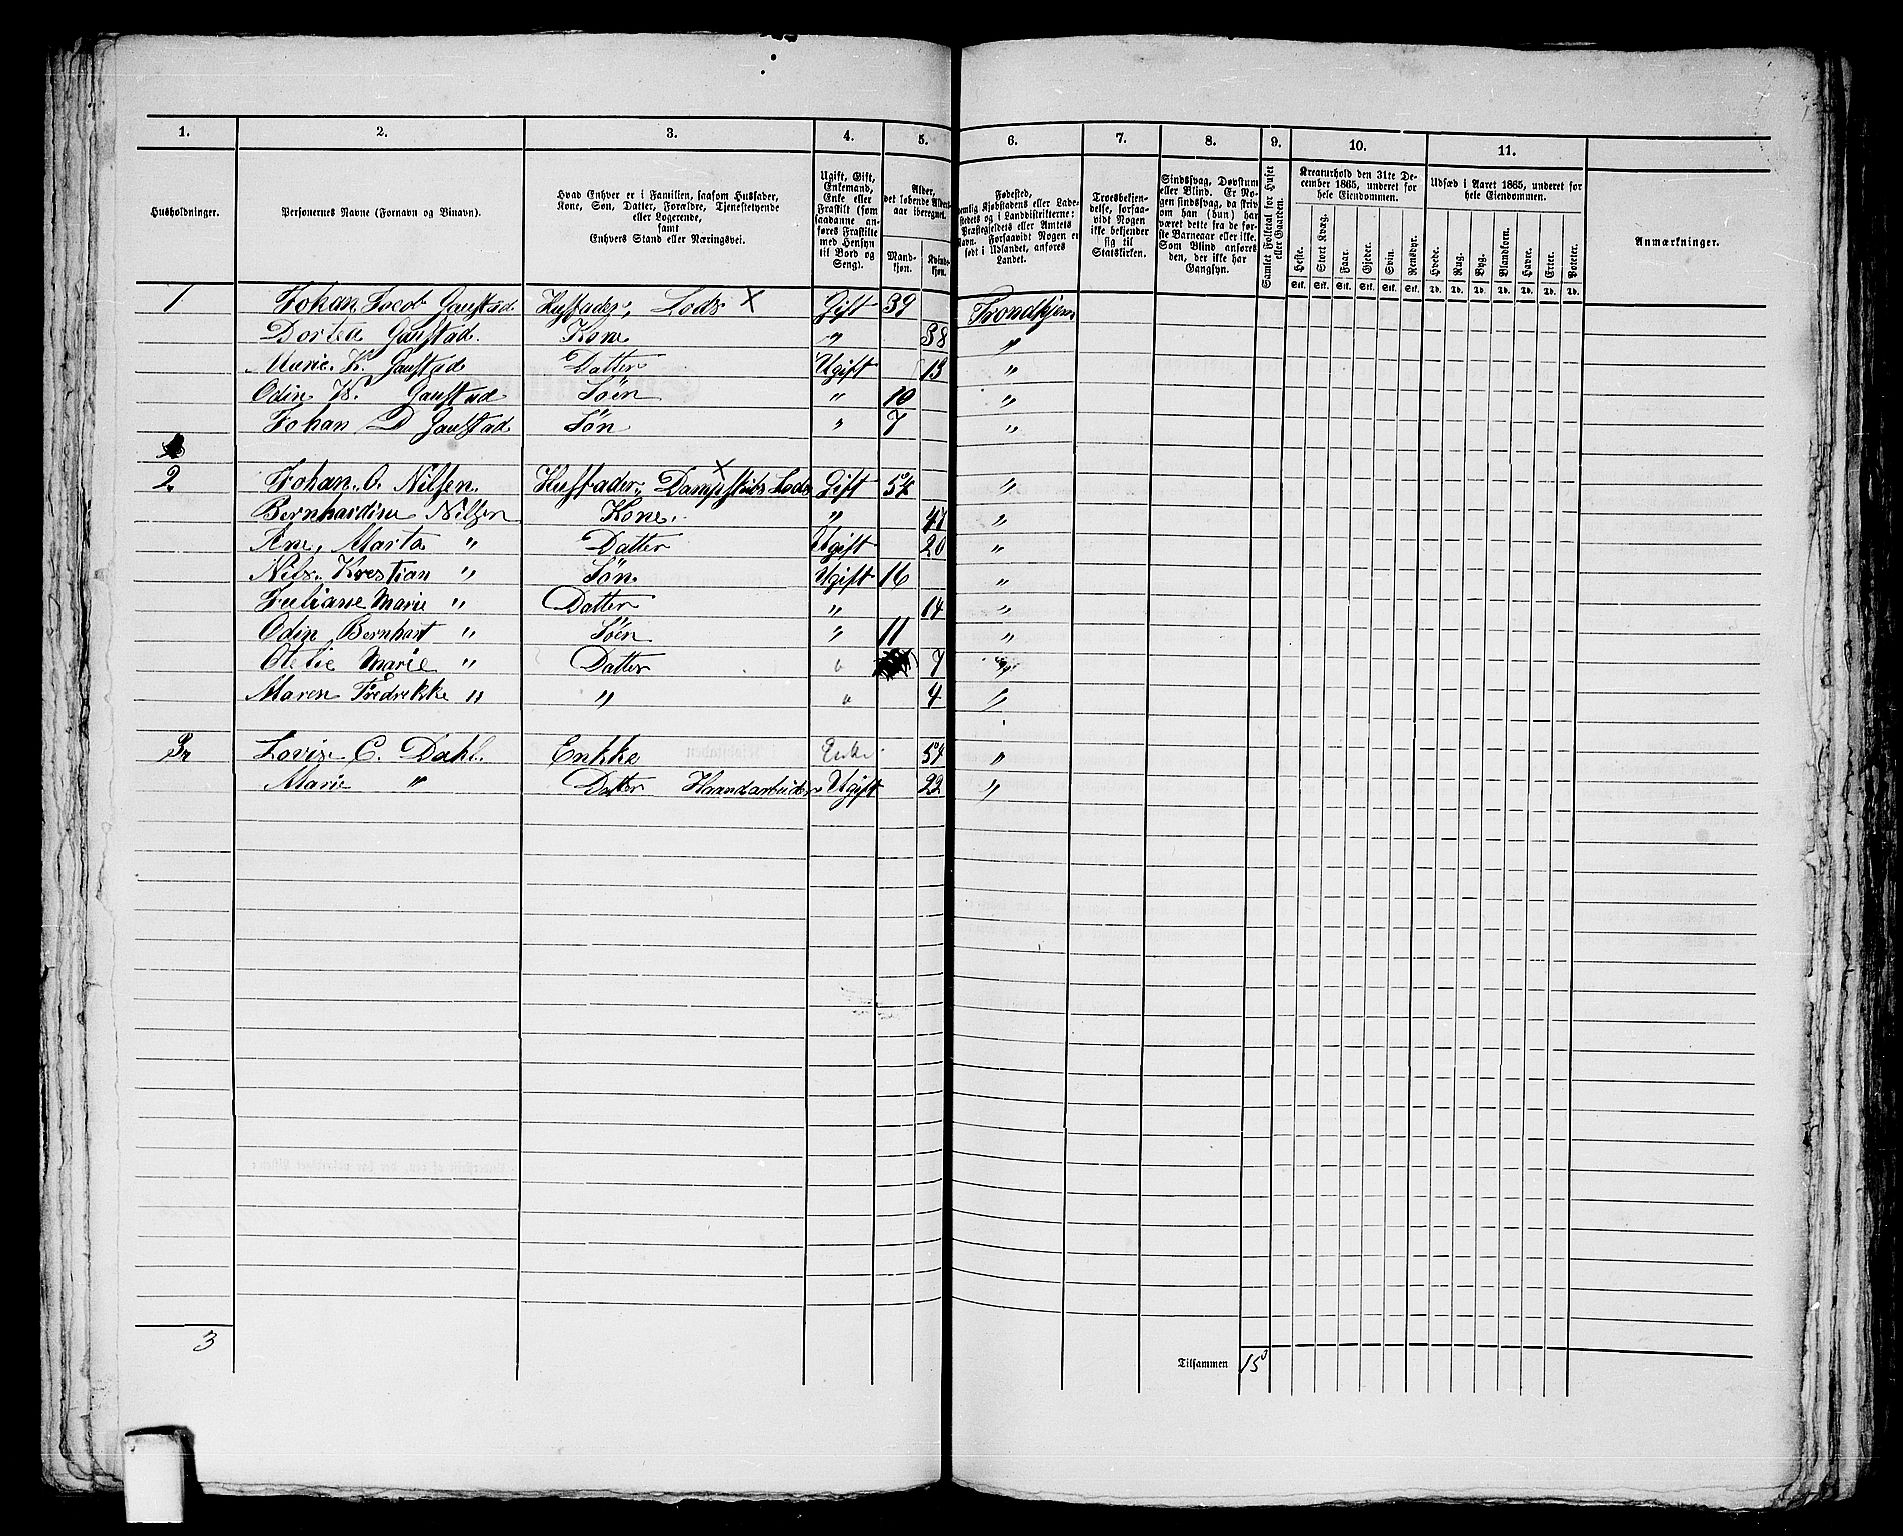 1. 2. 3. 4. 5. 6. 7. 8. 9. 10. 11.
Husholdninger.
Personernes Navne (Fornavn og Binavn).
Hvad Enhver er i Familien, saasom Husfader,
Kone, Søn, Datter, Forældre, Tjenestetyende
eller Logerende,
samt
Enhvers Stand eller Næringsvei.
Ugift, Gift,
Enkemand,
Enke eller
Fraskilt (som
saadanne an-
føres Fraskilte
med Hensyn
til Bord og
Seng).
Alder,
det løbende Alders-
aar iberegnet.
Mand-
kjøn.
Kvind-
kjøn.
Fødested,
nemlig Kjøbstadens eller Lade-
stedets og i Landdistrikterne:
Præstegjeldets eller Amtets
Navn. Forsaavidt Nogen er
født i Udlandet, anføres
Landet.
Troesbekjen-
delse, forsaa-
vidt Nogen
ikke bekjender
sig til
Statskirken.
Sindssvag, Døvstum
eller Blind. Er No-
gen sindssvag, da skriv
om han (hun) har
været dette fra de før-
ste Barneaar eller ikke.
Som Blind anføres
den, der ikke har
Gangsyn.
Samlet Folketal for Huset
eller Gaarden.
Kreaturhold den 31te De-
cember 1865, underet for
hele Eiendommen.
Heste. Stort Kvæg. Faar. Gjeder. Svin. Rensdyr.
Stk. Stk. Stk. Stk. Stk. Stk.
Udsæd i Aaret 1865, underet for
hele Eiendommen.
Hvede. Rug. Byg. Blandkorn. Havre. Erter. Poteter.
Td. Td. Td. Td. Td. Td. Td.
Anmærkninger.
1 Johan Jacob Gaustad Husfader, Lods × Gift 39 Trondhjem
Dortea Gaustad. Kone " 38 "
Marie K. Gaustad Datter Ugift 13 "
Odin Gaustad Søen " 10 "
Johan D Gaustad Søn " 7 "
2. Johan O. Nilsen. Husfader, Dampskibs Lods × Gift 54 "
Bernhardine Nilsen Kone. " 47 "
Ane, Marta " Datter Ugift 20 "
Nils Krestian " Søn. Ugift 16 "
Juliane Marie " Datter " 14 "
Odin Bernhart " Søen " 11 "
Marie " Datter " 7 "
Maren Fredrikke " " " 4 "
3 Lovise C. Dahl. Enkke Enke 54 "
Marie " Datter Ugift 22 "
3
Tilsammen 15